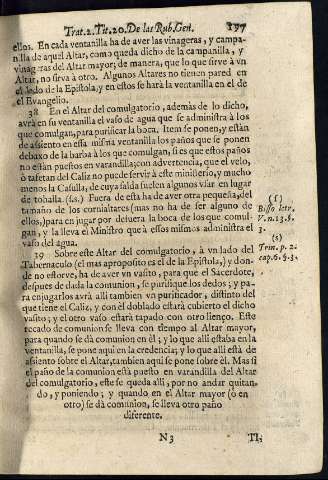 Trat.2.Tit.20. De las Rub. Gen. 197
ellos. En cada ventanilla ha de aver las vinageras, y campa-
nilla de aquel Altar, como queda dicho de la campanilla, y
vinageras del Altar mayor; de manera, que lo que sirve à vn
Altar, no sirva à otro. Algunos Altares no tienen pared en
el lado de la Epistola, y en estos se harà la ventanilla en el de
el Evangelio.
38 En el Altar del comulgatorio, además de lo dicho,
avrà en su ventanilla el vaso de agua que se administra à los
que comulgan, para purificar la boca. Item se ponen, y estàn
de assiento en esta misma ventanilla los paños que se ponen
debaxo de la barba à los que comulgan, si es que estos paños
no estàn puestos en varandilla; con advertencia, que el velo,
ò tafetan del Caliz no puede servir à este ministerio, y mucho
menos la Casulla, de cuya salda suelen algunos vsar en lugar
de tohalla. (ss.) Fuera de esta ha de aver otra pequeña, del
tamaño de los cornialtares (mas no ha de ser alguno de
ellos,) para en jugar por defuera la boca de los que comul-
gan, y la lleva el Ministro que à essos mismos administra el
vaso del agua.
(s)
Bisso letr.
V. n. 13. §.
3.
(s)
Trin. p. 2.
cap. 6. §. 3.
39 Sobre este Altar del comulgatorio, à vn lado del
Tabernaculo (el mas aproposito es el de la Epistola,) y don-
de no estorve, ha de aver vn vasito, para que el Sacerdote,
despues de dada la comunion, se purifique los dedos; y pa-
ra enjugarlos avrà alli tambien vn purificador, distinto del
que tiene el Caliz, y con èl doblado estarà cubierto el dicho
vasito; y el otro vaso estarà tapado con otro lienço. Este
recado de comunion se lleva con tiempo al Altar mayor,
para quando se dà comunion en èl; y lo que alli estaba en la
ventanilla, se pone aqui en la credencia; y lo que alli està de
assiento sobre el Altar, tambien aqui se pone sobre èl. Mas si
el paño de la comunion està puesto en varandilla del Altar
del comulgatorio, este se queda alli, por no andar quitan-
do, y poniendo; y quando en el Altar mayor (ò en
otro) se dà comunion, se lleva otro paño
diferente.
N3 TI-